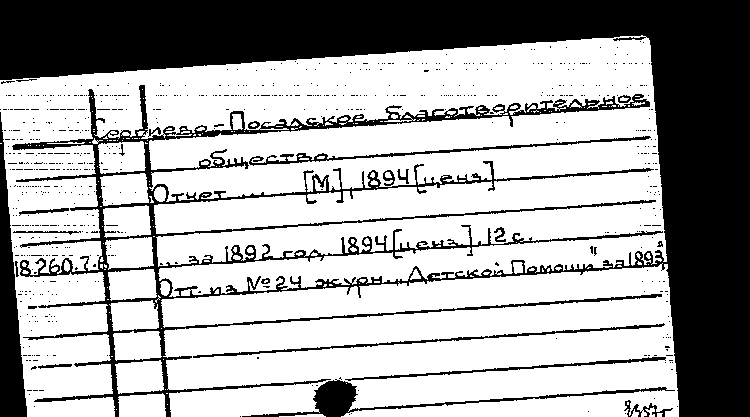 Сергиево-Посадское благотворительное
общество.
Отчет ... [М.], 1894 [ценз.]
... за 1892 год. 1894 [ценз.], 12 с.
18.260.7.6
Отт. из № 24 журн. „Детской Помощи" за 1893